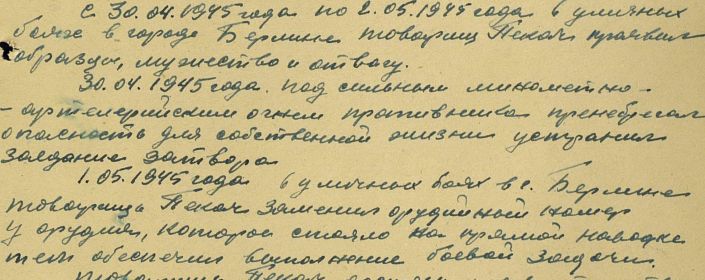 с 30.04.1945 года по 2.05.1945 года в уличных
боях в городе Берлине товарищ Пекач проявил
образцы, мужества и отвагу.
30.04.1945 года. под сильным минометно-
-артелерийским огнем противника пренебрегая
опасность для собственной жизни устранил
заедание затвора
1.05.1945 года в уличных боях в г. Берлине
товарищ Пекач заменил орудийный номер
у орудия, которое стояло на прямой наводке
тем обеспечил выполнение боевой задачи.
товарищ Пекач